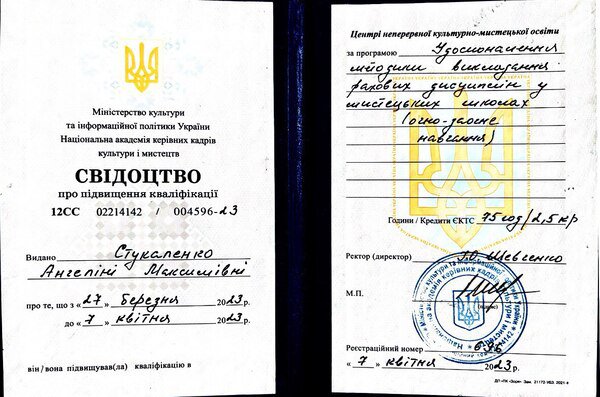 Міністерство культури
та інформаційної політики України
Національна академія керівних кадрів
культури і мистецтв
СВІДОЦТВО
про підвищення кваліфікації
12СС 02214142 / 004596-23
Видано Стукаленко
Ангеліні Максимівні
про те, що з «27» березня 2023р.
до «7» квітня 2023р.
він / вона підвищував(ла) кваліфікацію в
Центрі неперервної культурно-мистецької освіти
за програмою Удосконалення
методики викладання
фахових дисциплін у
мистецьких школах
(очно-заочне
навчання)
Години / Кредити ЄКТС 75 год/2,5 кр
Ректор (директор) Шевченко
М.П.
Реєстраційний номер
«7» квітня 2023р.